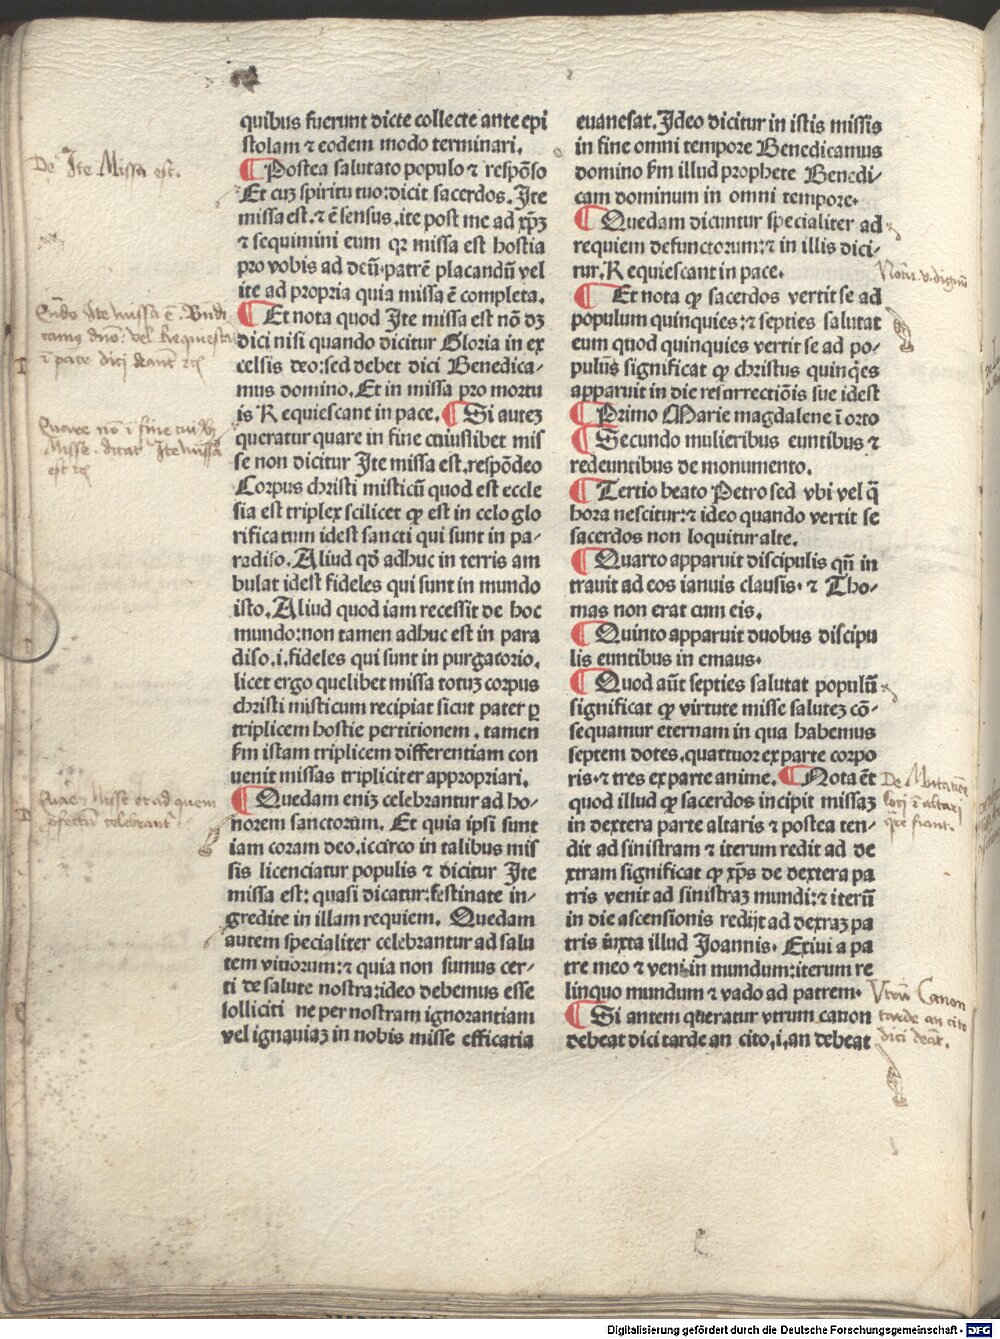 quibus fuerunt dicte collecte ante epi
stolam ⁊ eodem modo terminari.
¶ Postea salutato populo ⁊ respõso
Et cuꝫ spiritu tuo: dicit sacerdos. Ite
missa est. ⁊ ẽ sensus. ite post me ad xp̃ꝫ
⁊ sequimini eum qꝛ missa est hostia
pro vobis ad deũ patrẽ placandũ vel
ite ad propria quia missa ẽ completa.
¶ Et nota quod Ite missa est nõ dꝫ
dici nisi quando dicitur Gloria in ex
celsis deo: sed debet dici Benedica-
mus domino. Et in missa pro mortu
is Requiescant in pace. ¶ Si auteꝫ
queratur quare in fine cuiuslibet mis
se non dicitur Ite missa est. respõdeo
Corpus christi misticũ quod est eccle
sia est triplex scilicet ꝙ est in celo glo
rificatum idest sancti qui sunt in pa-
radiso. Aliud qđ adhuc in terris am
bulat idest fideles qui sunt in mundo
isto. Aliud quod iam recessit de hoc
mundo: non tamen adhuc est in para
diso. i. fideles qui sunt in purgatorio.
licet ergo quelibet missa totuꝫ corpus
christi misticum recipiat sicut pater ꝑ
triplicem hostie pertitionem. tamen
ẜm istam triplicem differentiam con
uenit missas tripliciter appropriari.
¶ Quedam eniꝫ celebrantur ad ho-
norem sanctorum. Et quia ipsi sunt
iam coram deo. iccirco in talibus mis
sis licenciatur populis ⁊ dicitur Ite
missa est: quasi dicatur: festinate in-
gredite in illam requiem. Quedam
autem specialiter celebrantur ad salu
tem viuorum: ⁊ quia non sumus cer-
ti de salute nostra: ideo debemus esse
solliciti ne per nostram ignorantiam
vel ignauiaꝫ in nobis misse efficatia
euanescat. Ideo dicitur in istis missis
in fine omni tempore Benedicamus
domino ẜm illud prophete Benedi-
cam dominum in omni tempore.
¶ Quedam dicuntur specialiter ad
requiem defunctorum: ⁊ in illis dici-
tur. Requiescant in pace.
¶ Et nota ꝙ sacerdos vertit se ad
populum quinquies: ⁊ septies salutat
eum quod quinquies vertit se ad po-
pulũ significat ꝙ christus quinq̃es
apparuit in die resurrectiõis sue idest
¶ Primo Marie magdalene ĩ orto
¶ Secundo mulieribus euntibus ⁊
redeuntibus de monumento.
¶ Tertio beato Petro sed vbi vel q̃
hora nescitur: ⁊ ideo quando vertit se
sacerdos non loquitur alte.
¶ Quarto apparuit discipulis qñ in
trauit ad eos ianuis clausis. ⁊ Tho-
mas non erat cum eis.
¶ Quinto apparuit duobus discipu
lis euntibus in emaus.
¶ Quod aũt septies salutat populũ
significat ꝙ virtute misse saluteꝫ cõ-
sequamur eternam in qua habemus
septem dotes. quattuor ex parte corpo
ris. ⁊ tres ex parte anime. ¶ Nota ẽt
quod illud ꝙ sacerdos incipit missaꝫ
in dextera parte altaris ⁊ postea ten-
dit ad sinistram ⁊ iterum redit ad de
xtram significat ꝙ xp̃s de dextera pa
tris venit ad sinistraꝫ mundi: ⁊ iterũ
in die ascensionis redijt ad dextraꝫ pa
tris iuxta illud Joannis. Exiui a pa
tre meo ⁊ veni in mundum: iterum re
linquo mundum ⁊ vado ad patrem.
¶ Si autem queratur vtrum canon
debeat dici tarde an cito. i. an debeat
De Ite Missa est.
Quare nõ ĩ fine
Misse . dicat Ite missa
De Mutatiõe
Vtrũ Canon
tarde an cito
dici debeat.
Digitalisierung gefördert durch die Deutsche Forschungsgemeinschaft - DFG